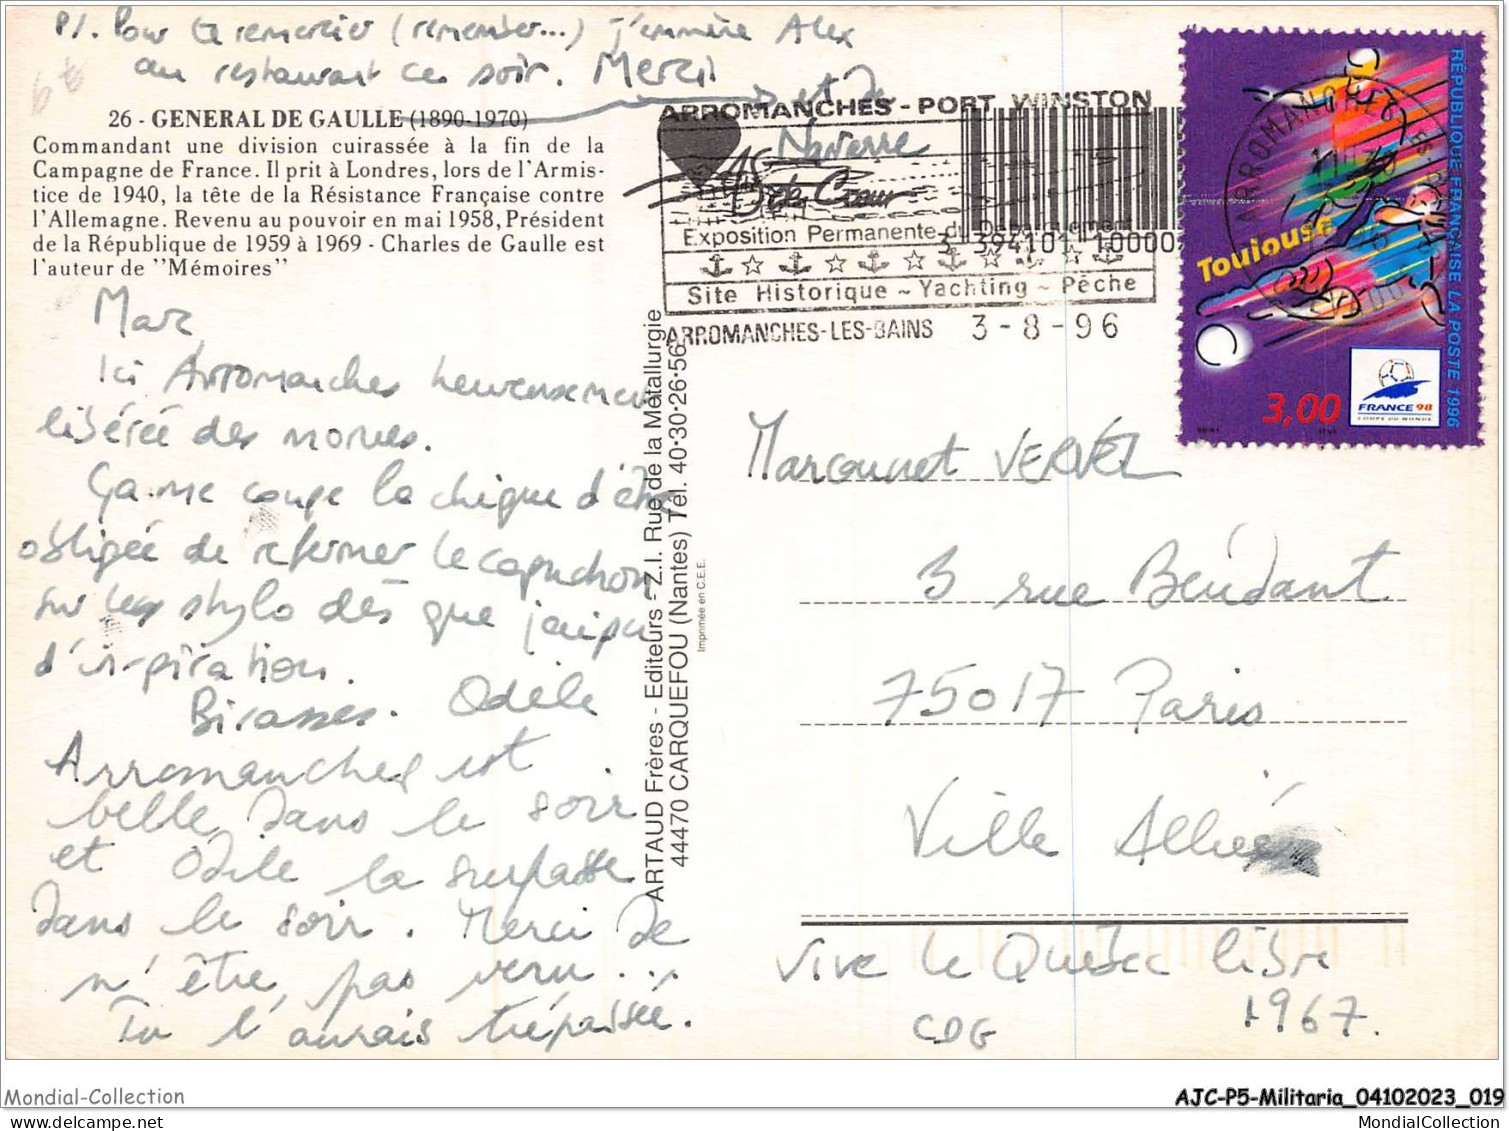 P/. Pour te remercier (remember...) j'emmène Alex
au restaurant ce soir. Merci
et de
Navarre
26 - GENERAL DE GAULLE (1890-1970)
Commandant une division cuirassée à la fin de la
Campagne de France. Il prit à Londres, lors de l'Armis-
tice de 1940, la tête de la Résistance Française contre
l'Allemagne. Revenu au pouvoir en mai 1958, Président
de la République de 1959 à 1969 - Charles de Gaulle est
l'auteur de "Mémoires"
Marc
Ici Arromanches heureusement
libérée des morues.
Ça me coupe la chique d'être
obligée de refermer le capuchon
sur les stylo dès que j'ai pu
d'inspiration.
Bicasses. Odile
Arromanches est
belle dans le soir
et Odile la surpasse
dans le soir. Merci de
n'être pas venu...
Tu l'aurais trépaisée.
ARTAUD Frères - Editeurs - Z.I. Rue de la Métallurgie
44470 CARQUEFOU (Nantes) Tél. 40·30·26·56
Imprimée en C.E.E.
ARROMANCHES - PORT WINSTON
de Cœur
Exposition Permanente du Débarquement
Site Historique ~ Yachting ~ Pêche
ARROMANCHES-LES-BAINS 3-8-96
3 394101 10000
RÉPUBLIQUE FRANÇAISE LA POSTE 1996
Toulouse
3,00
FRANCE 98
COUPE DU MONDE
VERVEL
3 rue Beudant
75017 Paris
Ville Alliée
Vive le Québec libre
1967.
CDG
Mondial-Collection
AJC-P5-Militaria_04102023_019
mondial-collection.com
MondialCollection